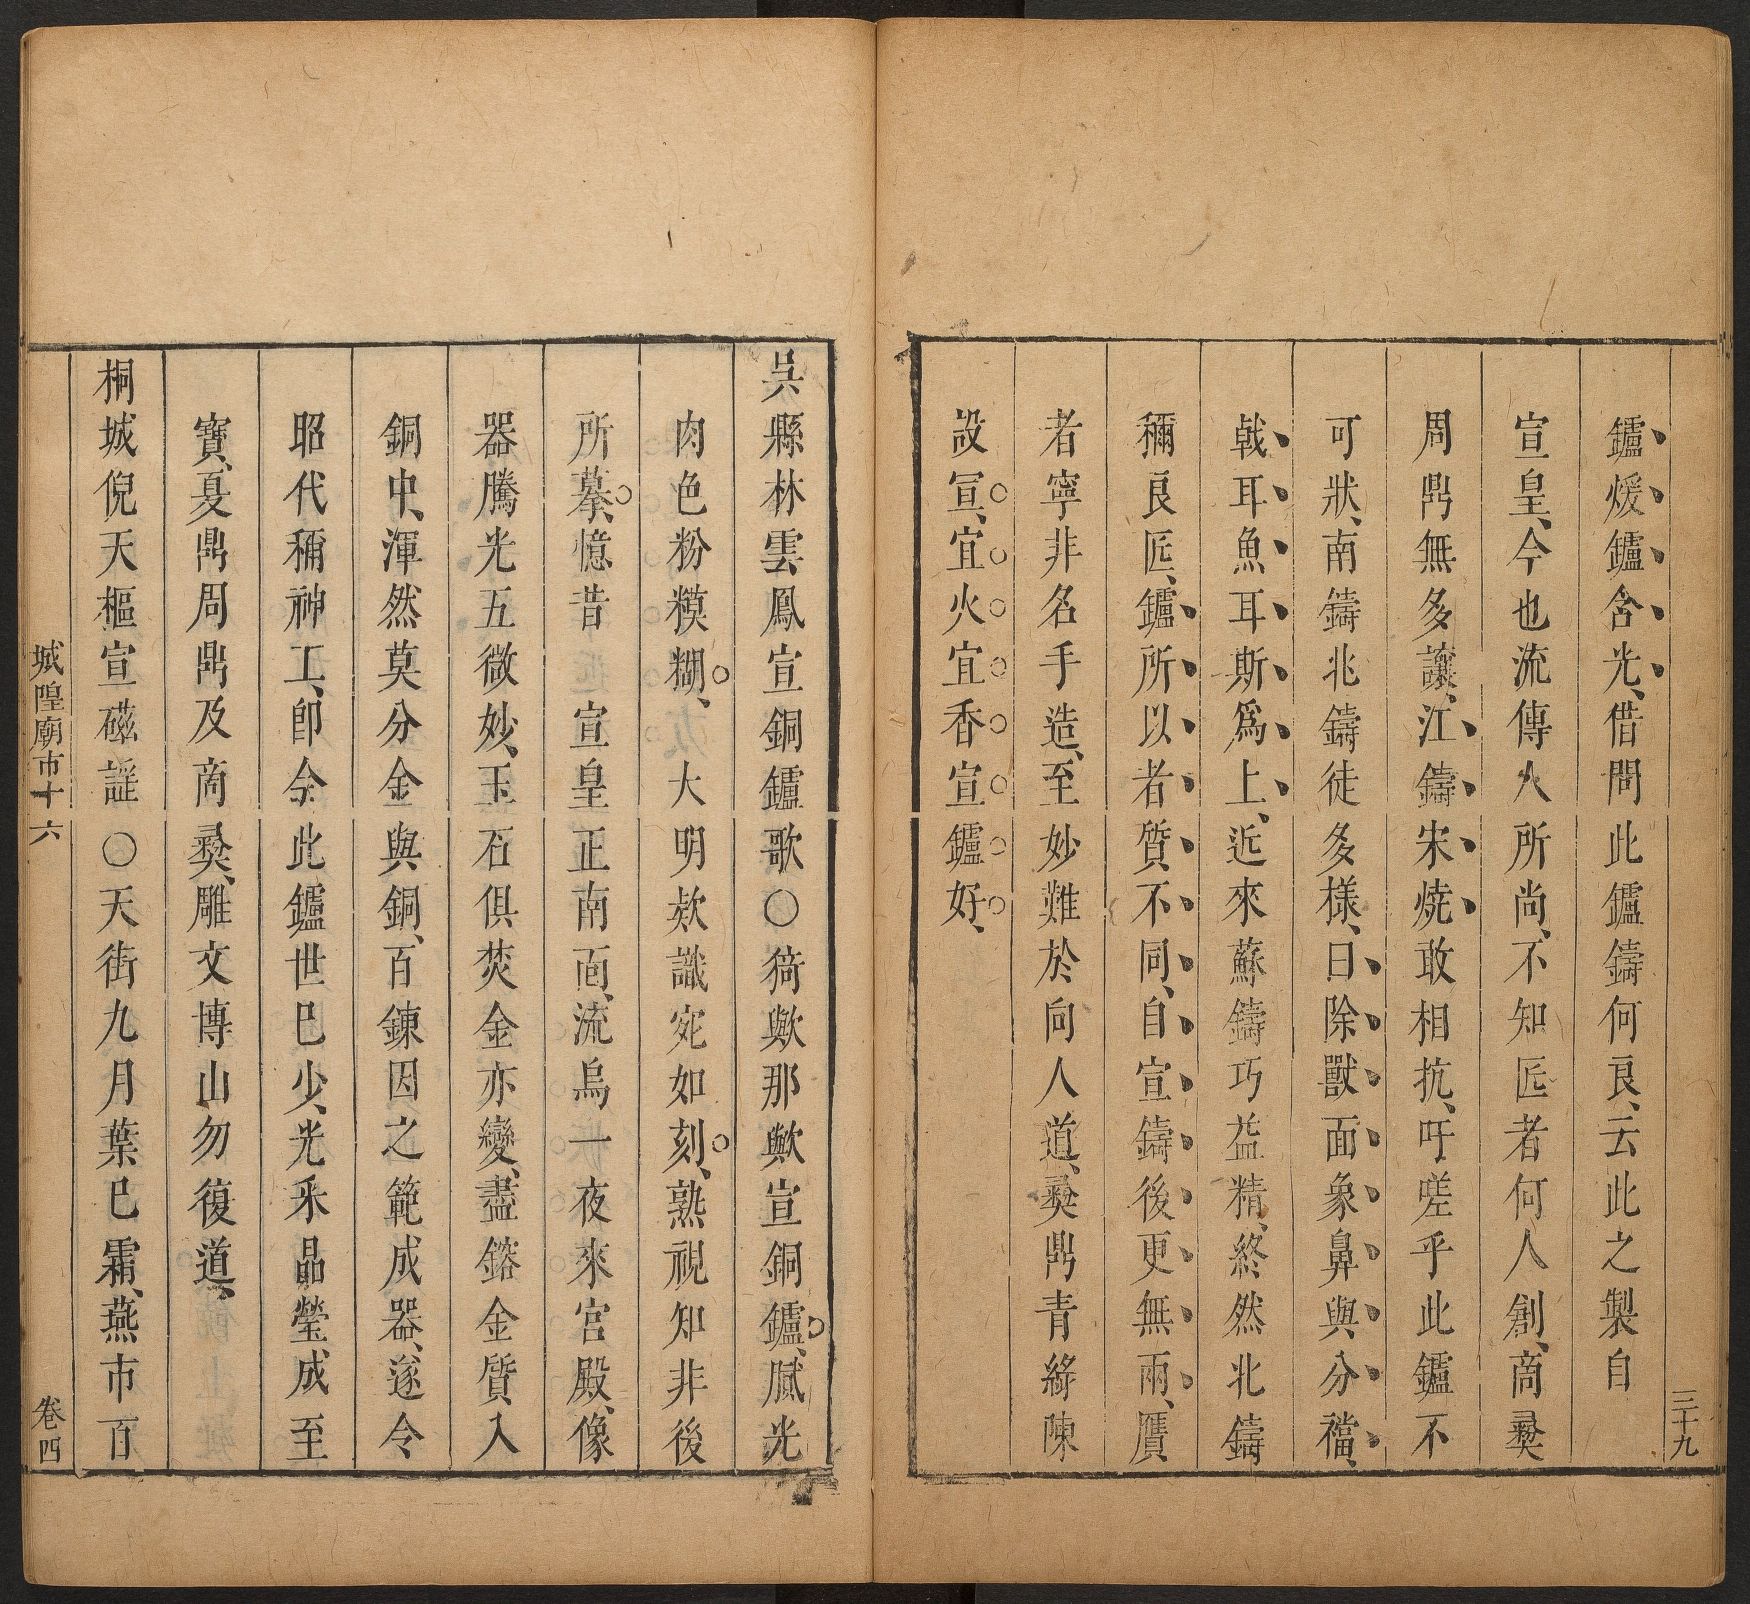 鑪煖鑪含光、借問此鑪鑄何良、云此之製自
宣皇、今也流傳人所尚、不知匠者何人創、商彝
周鼎無多讓、江鑄宋燒敢相抗、吁嗟乎此鑪不
可狀、南鑄北鑄徒多樣、日除獸面象鼻與分襠、
戟耳魚耳斯爲上、近來蘇鑄巧益精、終然北鑄
稱良匠、鑪所以者質不同、自宣鑄後更無兩、贋
者寧非名手造、至妙難於向人道、彝鼎青綠陳
設冥、宜火宜香宣鑪好、
三十九
吳縣林雲鳳宣銅鑪歌○猗歟那歟宣銅鑪、膩光
肉色粉糢糊、大明欵識宛如刻、熟視知非後
所摹、憶昔宣皇正南面、流烏一夜來宮殿、像
器騰光五微妙、玉石俱焚金亦變、盡鎔金質入
銅中、渾然莫分金與銅、百鍊因之範成器、遂令
昭代稱神工、卽今此鑪世巳少、光釆晶瑩成至
寶、夏鼎周鼎及商彝、雕文博山勿復道、
桐城倪天樞宣磁謡○天街九月葉巳霜、燕市百
城隍廟市十六
卷四